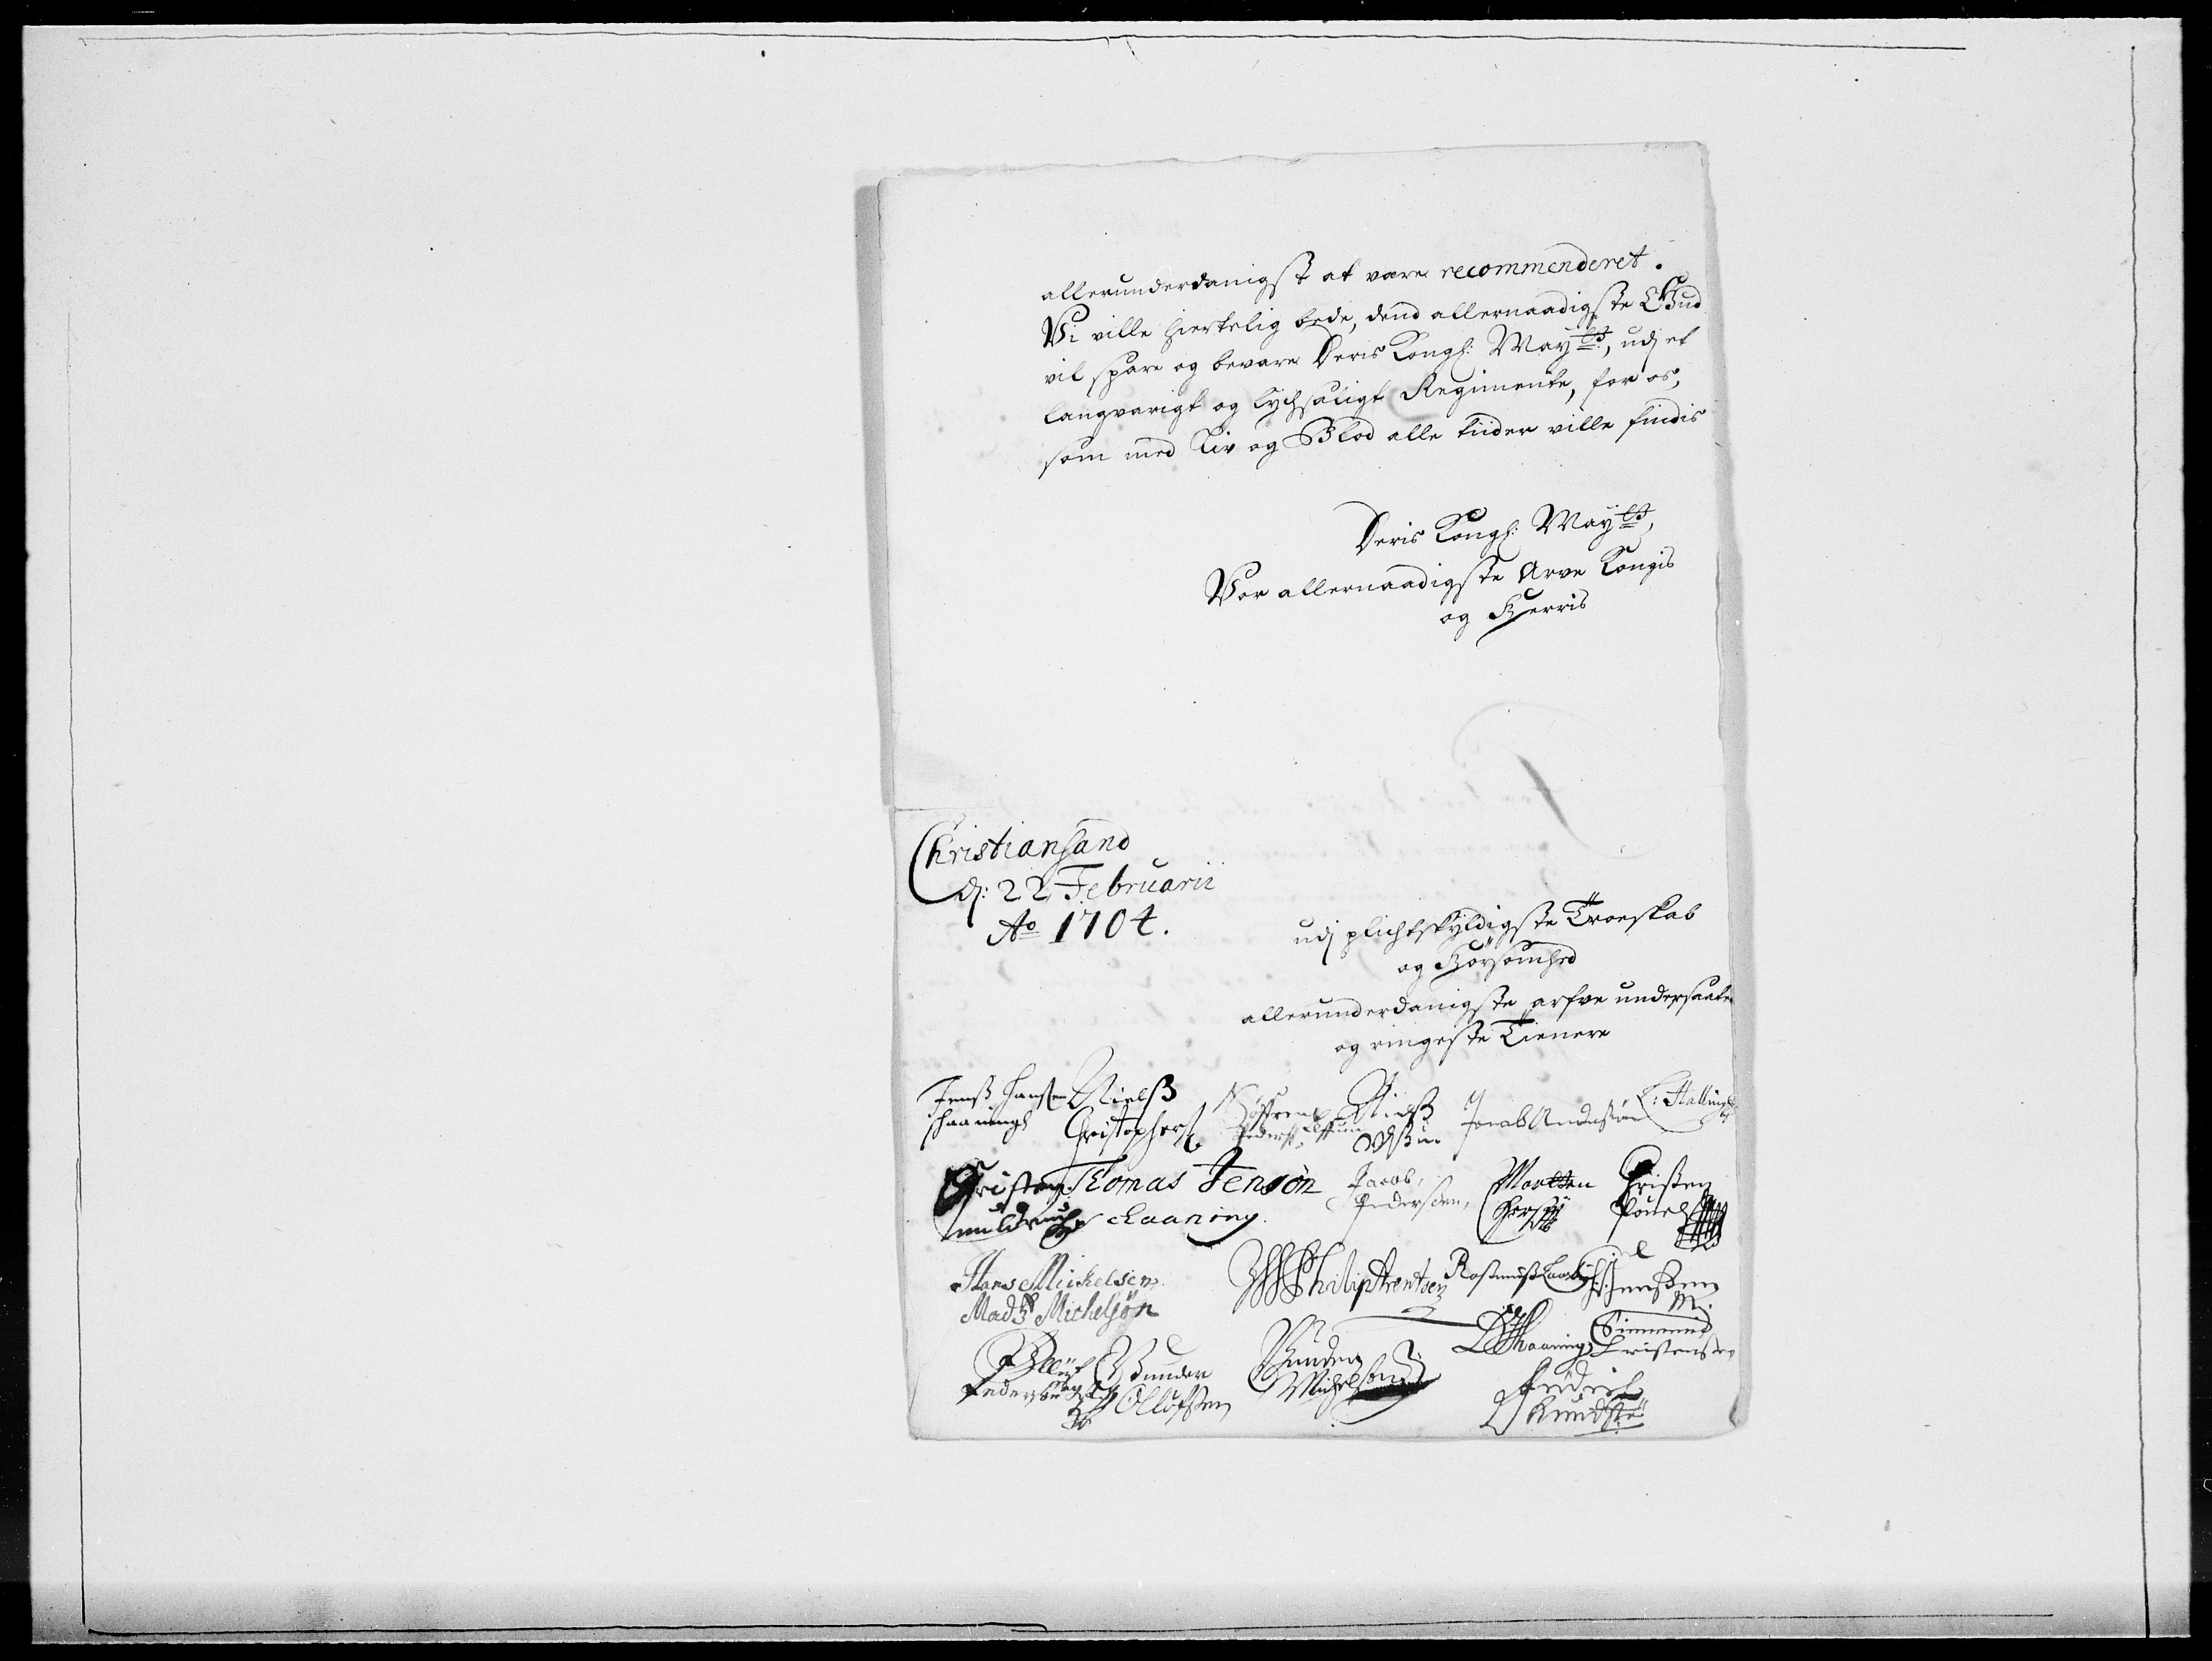 allerunderdanigst at være recommenderet.
Vi ville hiertelig bede, dend allernaadigste Gud
vil spare og bevare Deris Kongl: Mayts, udj et
langvarigt og lychsaligt Regimente, for os,
som med Liv og Blod alle tiider ville findis
Deris Kongl: Mayts,
Vor allernaadigste Arve Kongis
og Herris
Christiansand
dj: 22 Februarii
Ao 1704.
udj plichtskyldigste Troeskab
og Hörsomhed
allerunderdanigste arfve undersaater
og ringeste Tienere
Jenß Hansen Nielß
Christophers
Niels
Jacob Andersön
Christen Thomas Jensön
Haaning.
Jacob Pedersen,
Morten
Christen
Povels
Hans Mickelsen
Mads Michelsön
Philip Arentsen
Rasmus
Jensen
Haaning
Simmend
Christensen
Oluf
Pedersen
Gunder
Ollufsen
Gunder
Michelsen
Fridrich
Knudsen